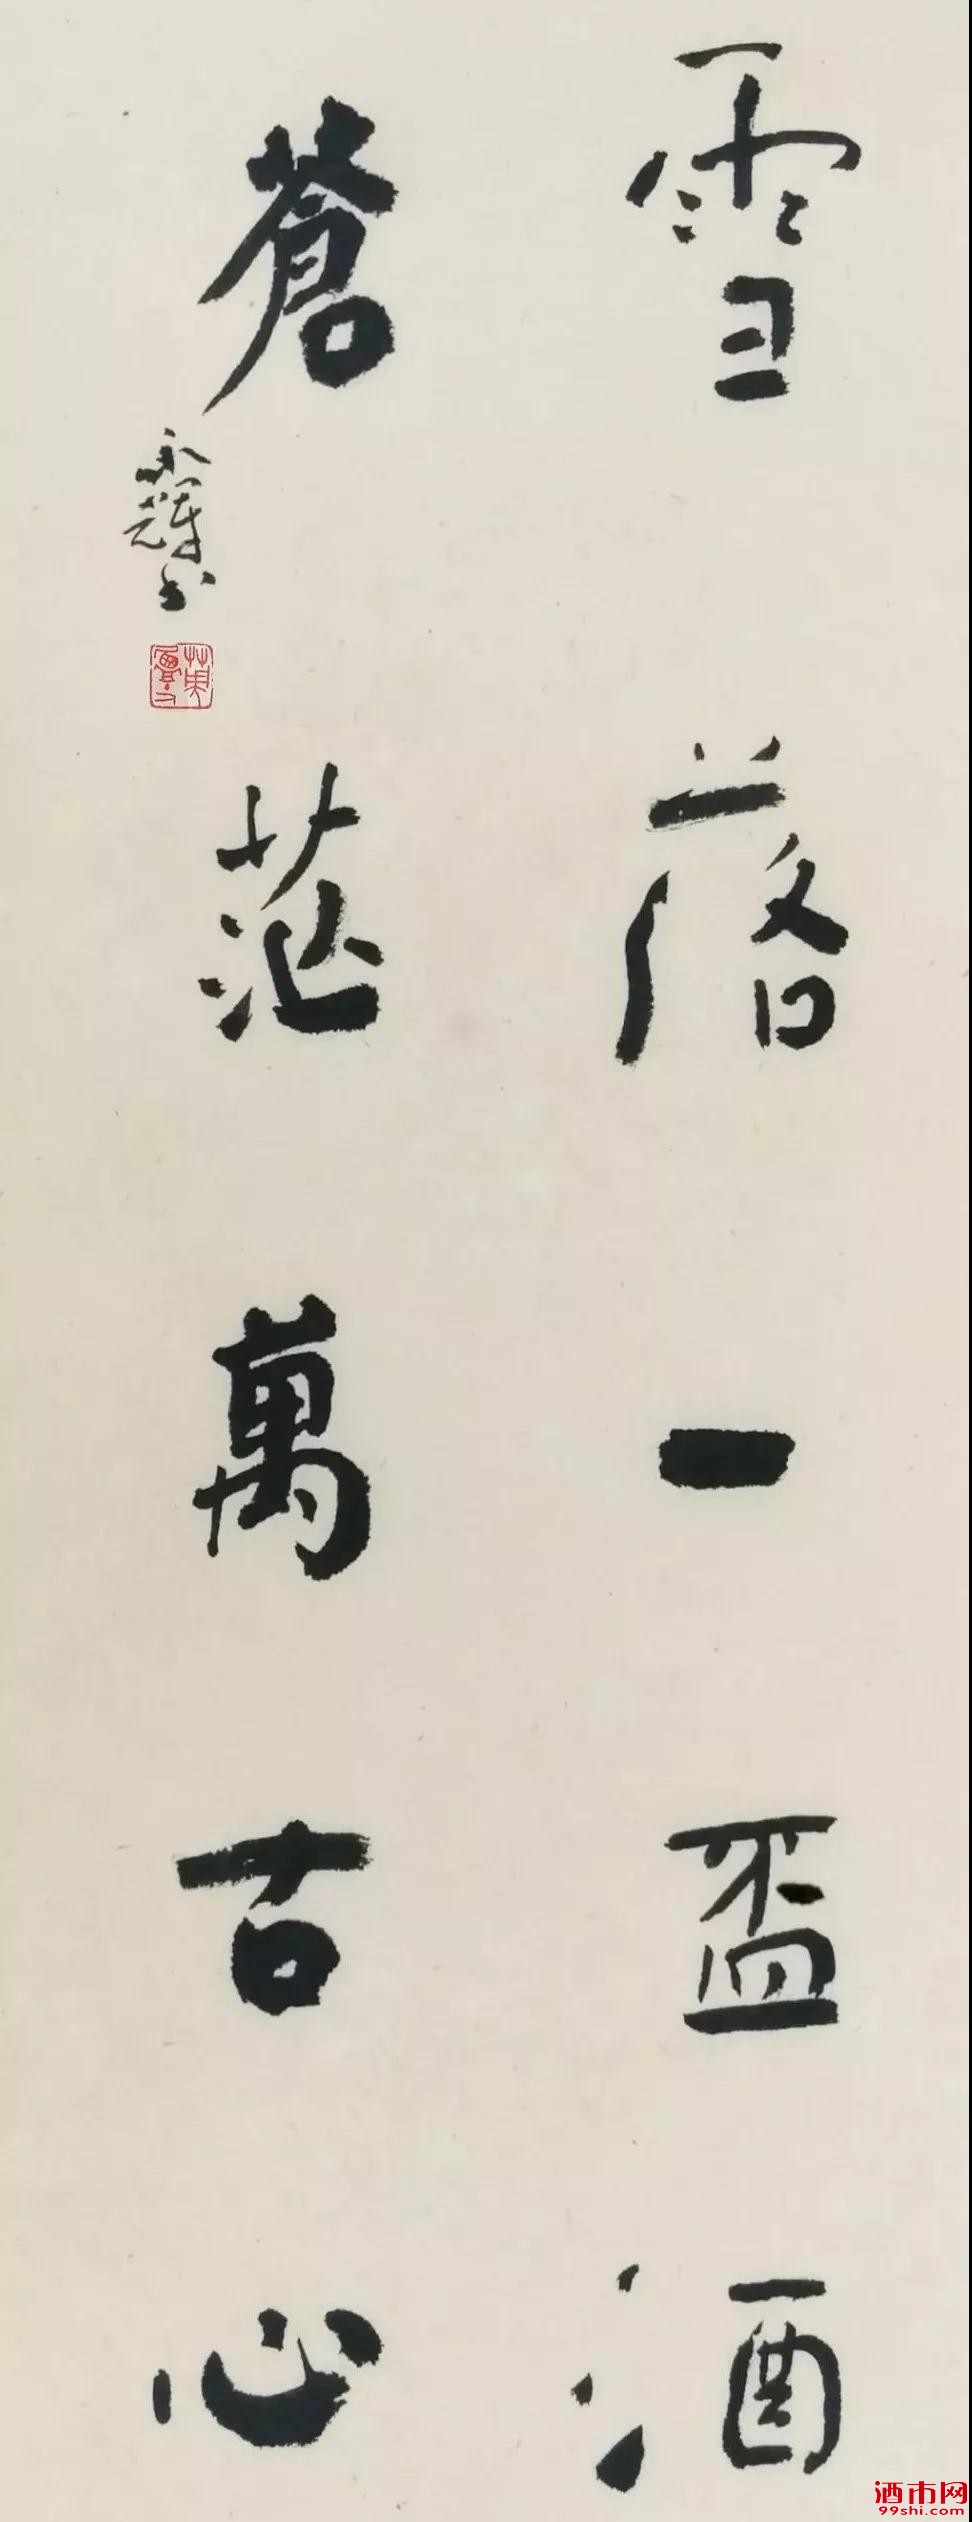 雪落一盃酒
蒼茫萬古心
永輝书
酒市网
99shi.com